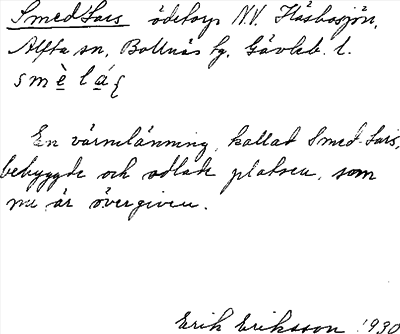 Smed-Lars ödetorp N.V. Håsbosjön,
Alfta sn, Bollnäs tg. Gävleb. l.
smè̱ lá̱ʃ
En värmlänning, kallad Smed-Lars,
bebyggde och odlade platsen, som
nu är övergiven.
Erik Eriksson 1930